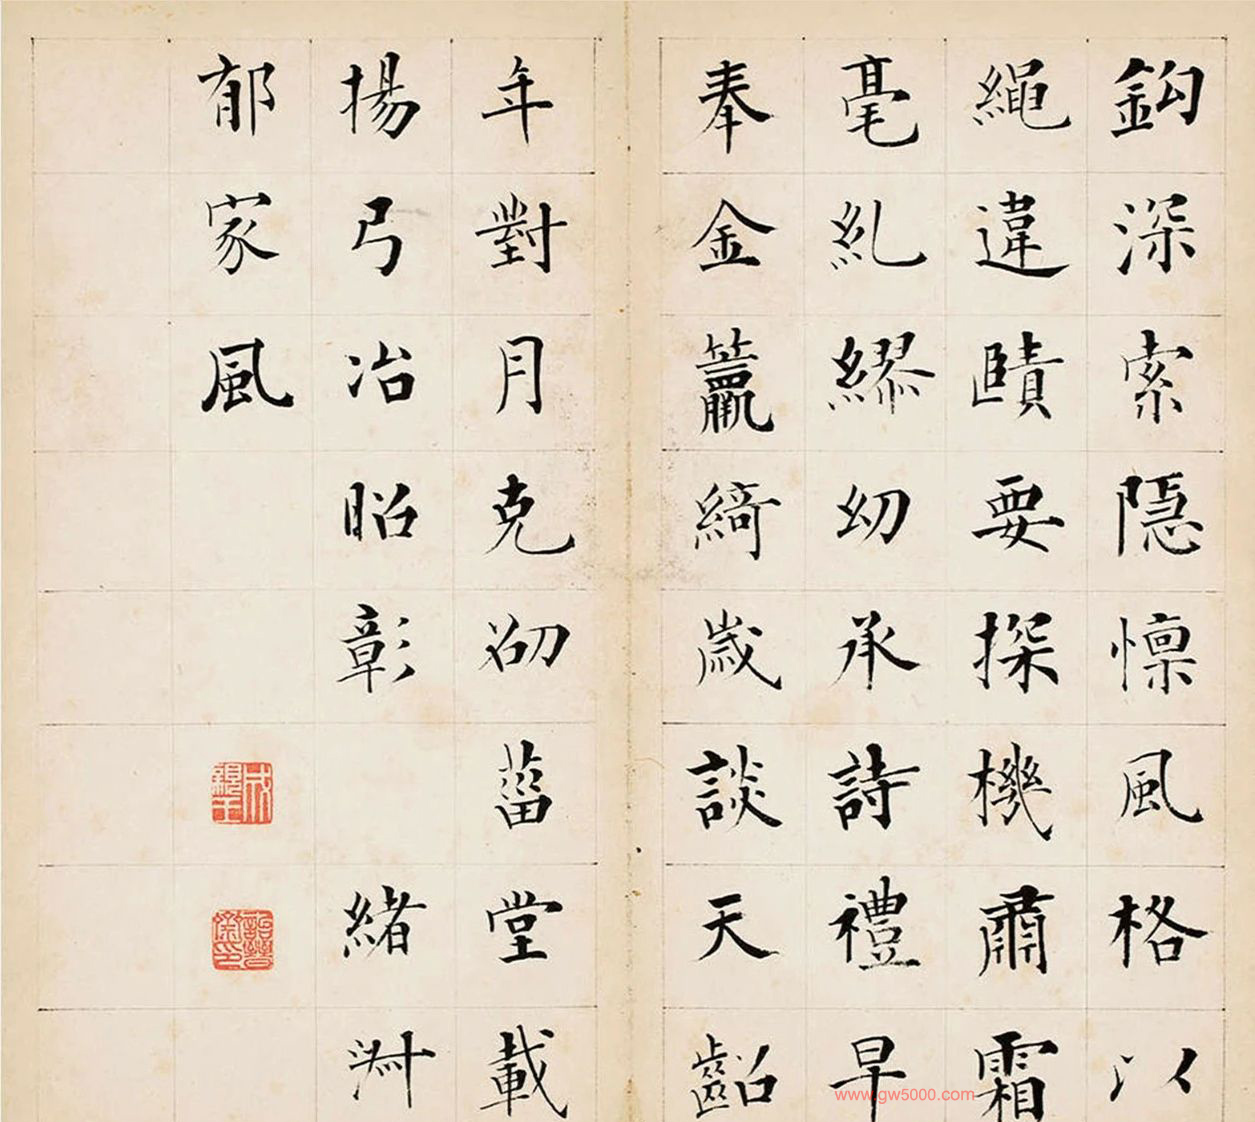 鈎深索隱懍風格以
繩違賾要探機肅霜
毫糺繆幼承詩禮早
奉金籝綺歲談天齠
年對月克劭菑堂載
揚弓冶昭彰緒
郁家風
www.gw5000.com